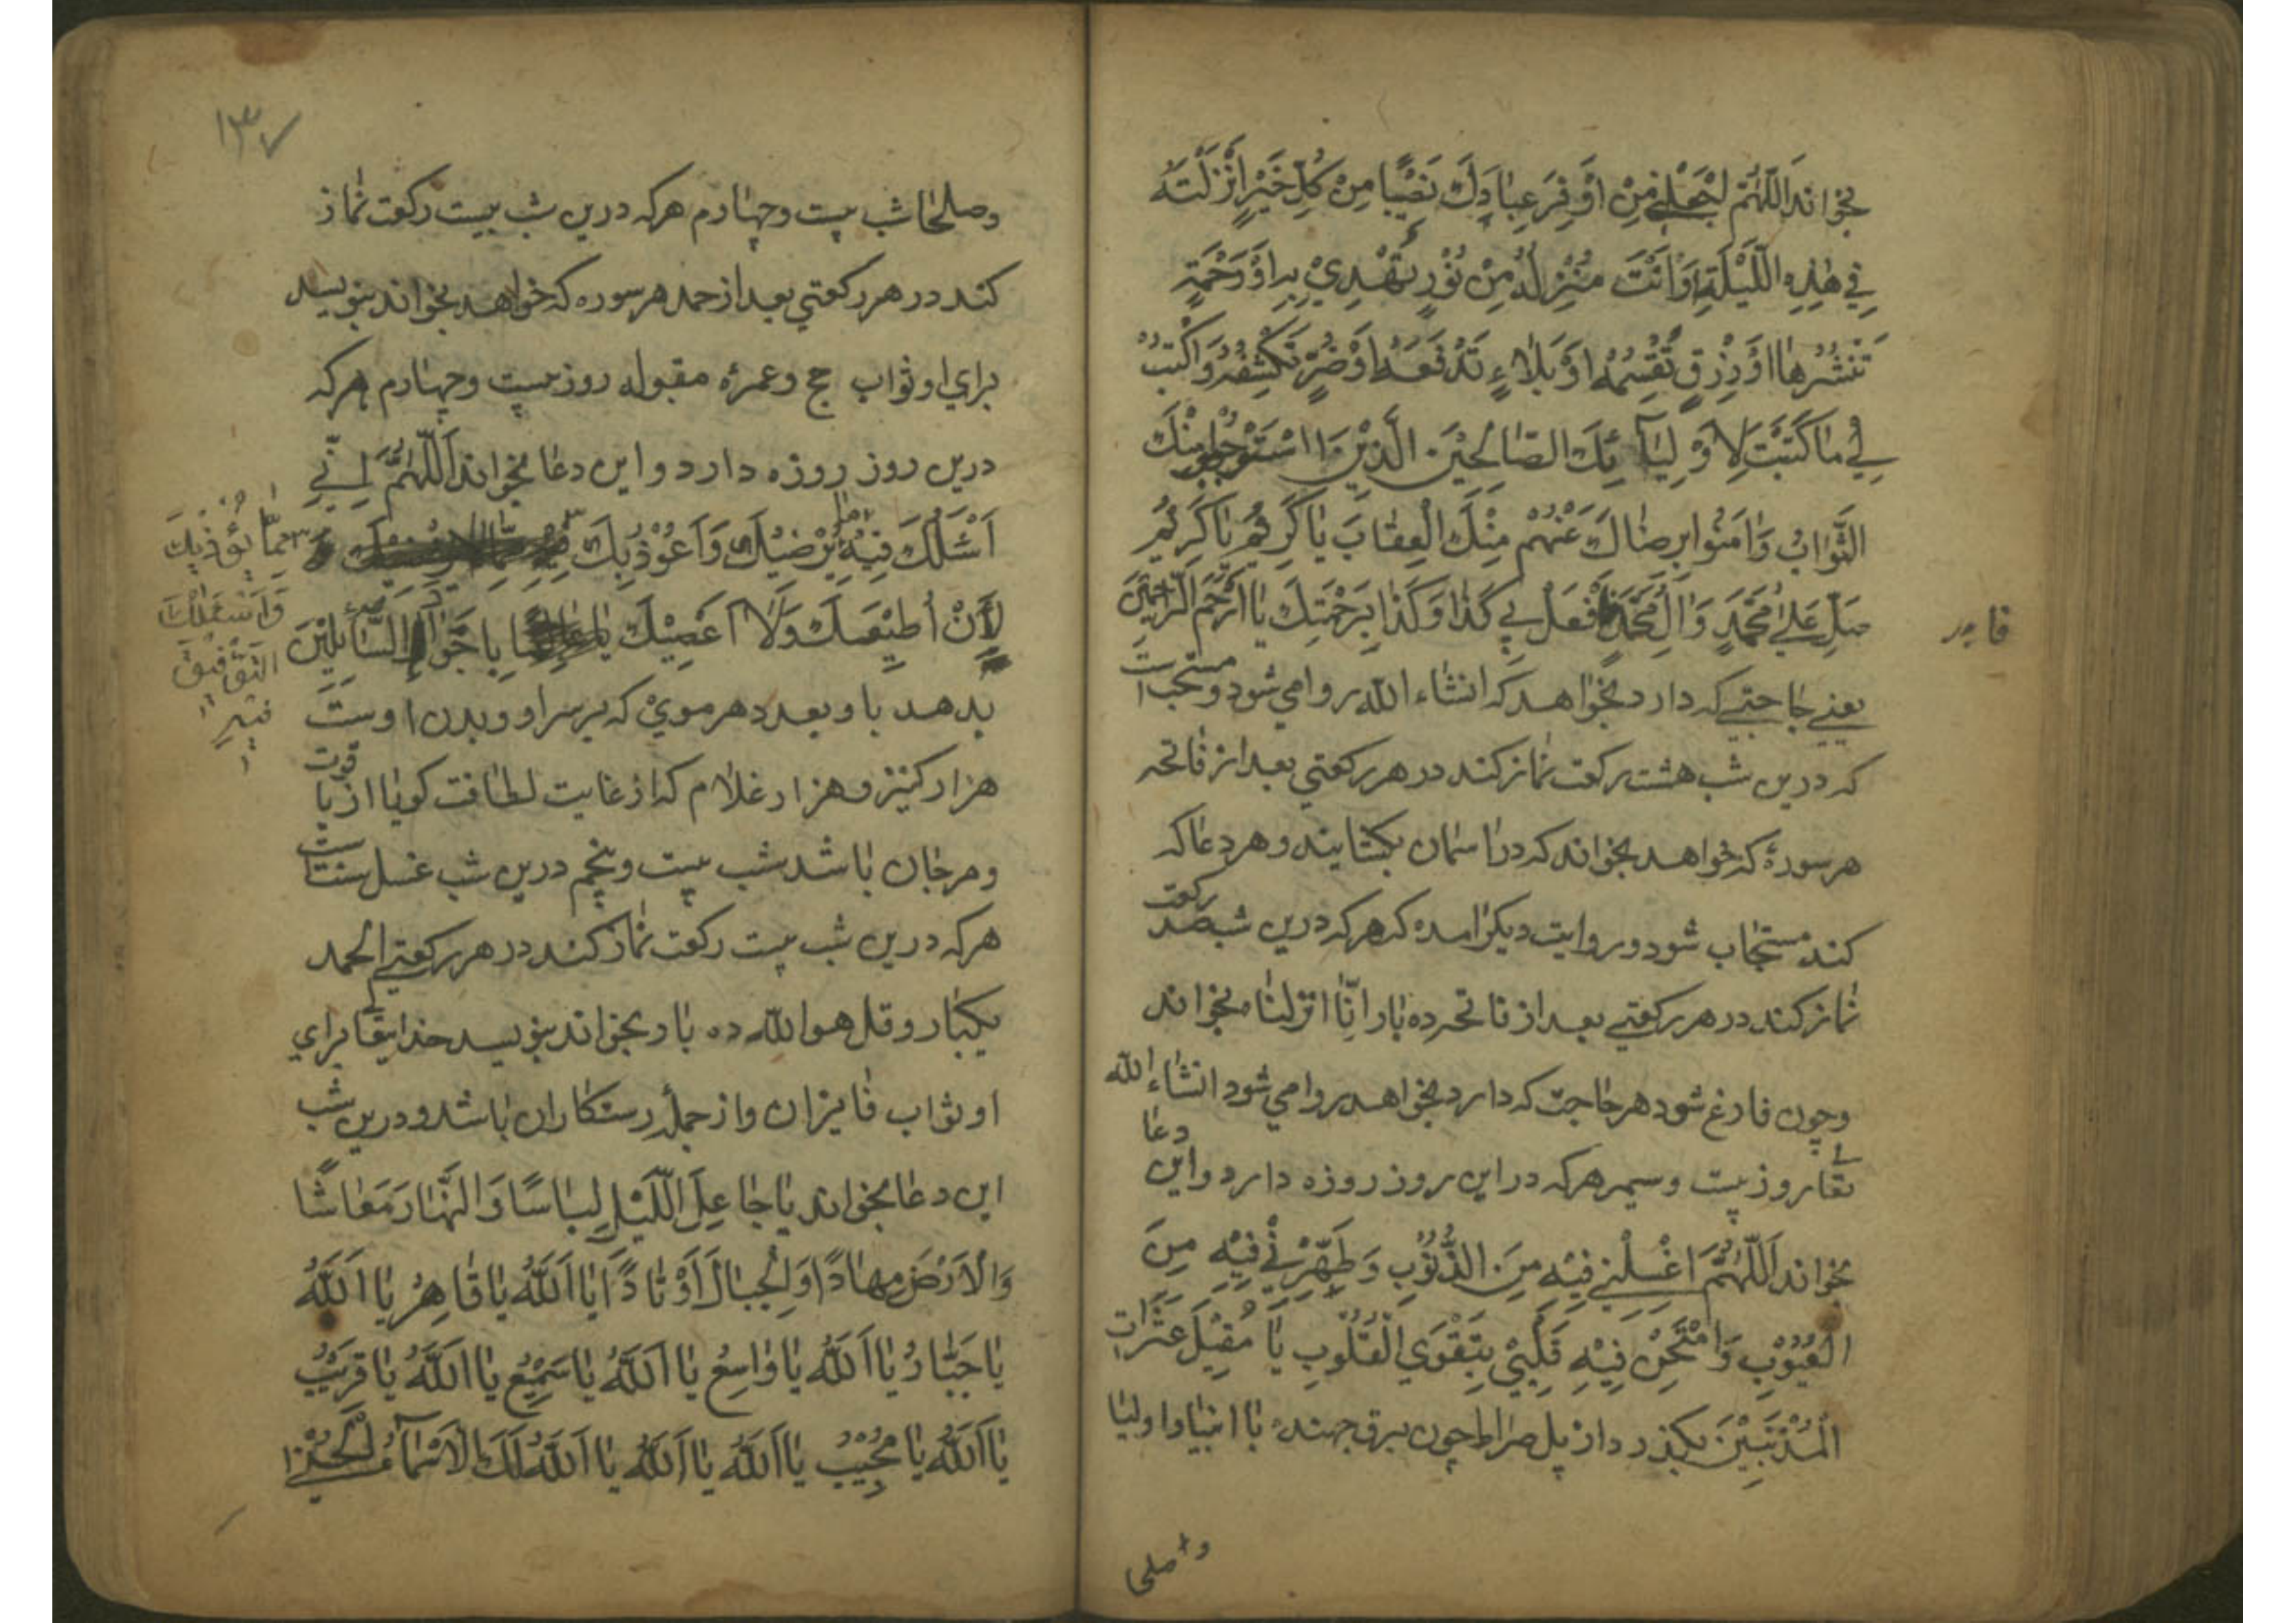 بخواند اَللّٰهُمَّ اجْعَلْنِي مِنْ اَوْفَرِ عِبَادِكَ نَصِيْبًا مِنْ كُلِّ خَيْرٍ اَنْزَلْتَهُ
فِي هٰذِهِ اللَّيْلَةِ وَاَنْتَ مُنْزِلُهُ مِنْ نُوْرٍ تَهْدِيْ بِهِ اَوْ رَحْمَةٍ
تَنْشُرُهَا اَوْ رِزْقٍ تُقْسِمُهُ اَوْ بَلَاءٍ تَدْفَعُهُ اَوْ ضُرٍّ تَكْشِفُهُ وَاكْتُبْ
لِي مَا كَتَبْتَ لِاَوْلِيَآئِكَ الصَّالِحِيْنَ الَّذِيْنَ اسْتَوْجَبُوا مِنْكَ
الثَّوَابَ وَاٰمَنُوا بِرِضَاكَ عَنْهُمْ مِنْكَ الْعِقَابَ يَا كَرِيْمُ يَا كَرِيْمُ
صَلِّ عَلٰي مُحَمَّدٍ وَاٰلِ مُحَمَّدٍ وَافْعَلْ بِي كَذَا وَكَذَا بِرَحْمَتِكَ يَا اَرْحَمَ الرَّاحِمِيْنَ
يعني حاجتي كه دارد بخواهد كه انشاء الله روا مي شود و مستحب است
كه درين شب هشت ركعت نماز كند در هر ركعتي بعد از فاتحه
هر سورهٔ كه خواهد بخواند كه در اسمان بكشايند و هر دعا كه
كند مستجاب شود و روايت ديكر امده كه هر كه درين شب صد ركعت
نماز كند در هر ركعتي بعد از فاتحه ده بار انّا انزلنا بخواند
و چون فارغ شود هر حاجت كه دارد بخواهد روا مي شود انشاء الله
تعالي روز بيست و سيم هر كه در اين روز روزه دارد و اين دعا
بخواند اَللّٰهُمَّ اغْسِلْنِي فِيْهِ مِنَ الذُّنُوْبِ وَطَهِّرْنِي فِيْهِ مِنَ
الْعُيُوْبِ وَامْتَحِنْ فِيْهِ قَلْبِيْ بِتَقْوَي الْقُلُوْبِ يَا مُقِيْلَ عَثَرَاتِ
الْمُذْنِبِيْنَ بكذرد از پل صراط چون برق جهنده با انبيا و اوليا
و صلحا
۱۳۷
و صلحا شب بيست و چهارم هر كه درين شب بيست ركعت نماز
كند در هر ركعتي بعد از حمد هر سوره كه خواهد بخواند بنويسد
براي او ثواب حج و عمرهٔ مقبوله روز بيست و چهارم هر كه
درين روز روزه دارد و اين دعا بخواند اَللّٰهُمَّ اِنِّي
اَسْئَلُكَ فِيْهِ مَا يُرْضِيْكَ وَاَعُوْذُ بِكَ
مِمَّا يُؤْذِيْكَ
وَاَسْئَلُكَ
التَّوْفِيْقَ
فِيْهِ
لِاَنْ اُطِيْعَكَ وَلَا اَعْصِيْكَ يَا جَوَادَ السَّائِلِيْنَ
بدهد باو بعدد هر موي كه بر سر او و بدن اوست
هزار كنيز و هزار غلام كه از غايت لطافت كويا از ياقوت
و مرجان باشد شب بيست و پنجم درين شب غسل سنت است
هر كه درين شب بيست ركعت نماز كند در هر ركعتي الحمد
يكبار و قل هو الله ده بار بخواند بنويسد خدايتعالي براي
او ثواب فايزان و از جملهٔ رستكاران باشد و درين شب
اين دعا بخواند يَا جَاعِلَ اللَّيْلِ لِبَاسًا وَالنَّهَارَ مَعَاشًا
وَالْاَرْضَ مِهَادًا وَالْجِبَالَ اَوْتَادًا يَا اَللّٰهُ يَا قَاهِرُ يَا اَللّٰهُ
يَا جَبَّارُ يَا اَللّٰهُ يَا وَاسِعُ يَا اَللّٰهُ يَا سَمِيْعُ يَا اَللّٰهُ يَا قَرِيْبُ
يَا اَللّٰهُ يَا مُجِيْبُ يَا اَللّٰهُ يَا اَللّٰهُ يَا اَللّٰهُ لَكَ الْاَسْمَآءُ الْحُسْنٰي